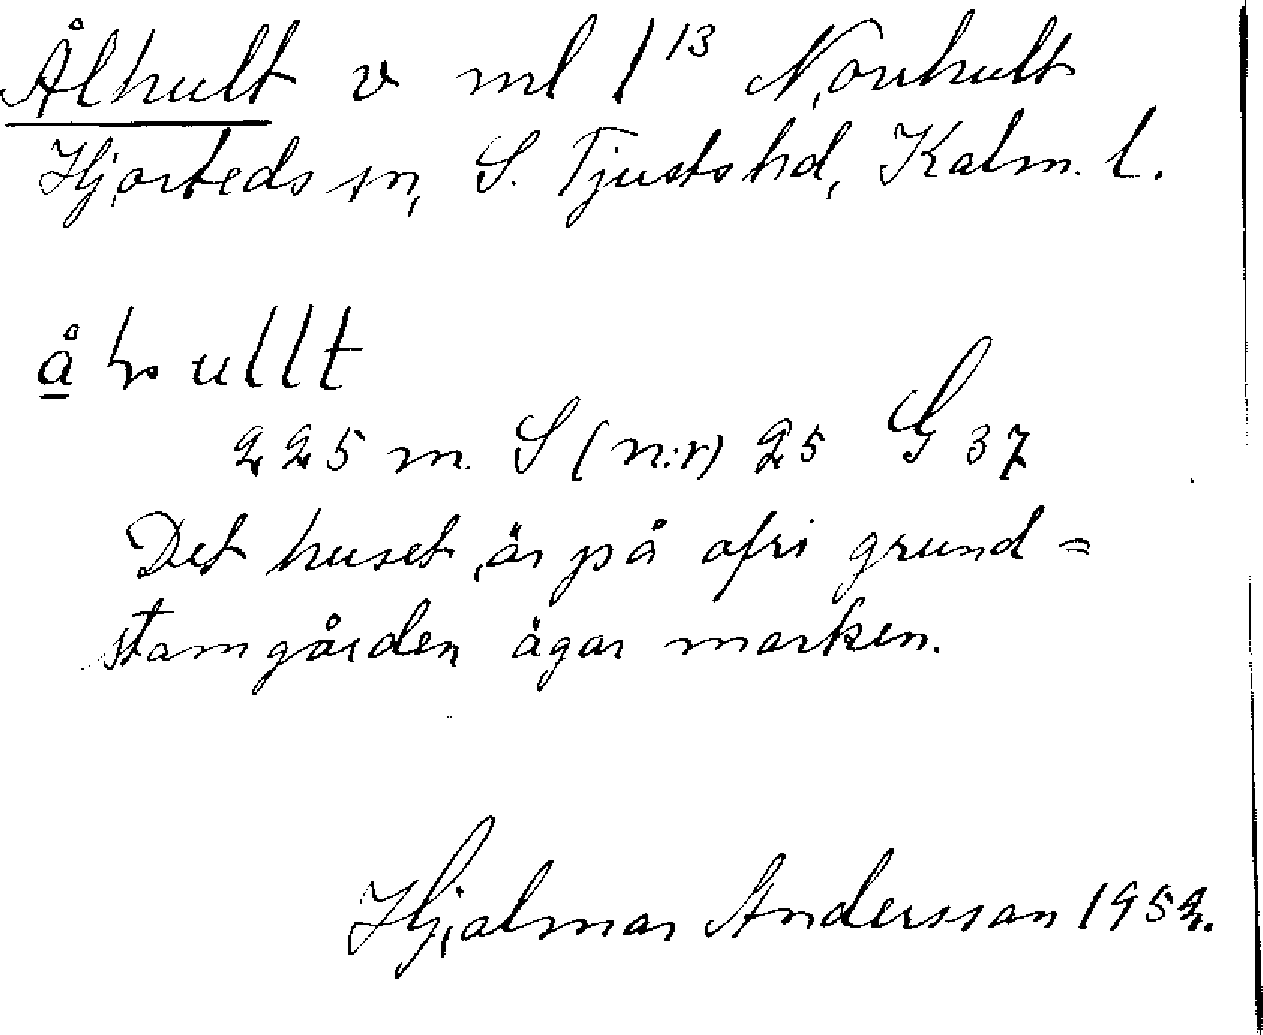 Ålhult v ml 1¹³ Norrhult
Hjorteds sn, S. Tjusts hd, Kalm. l.
å hullt
225 m. S (n:r) 25 G 37
Det huset är på ofri grund =
stamgården ägar marken.
Hjalmar Andersson 1952.